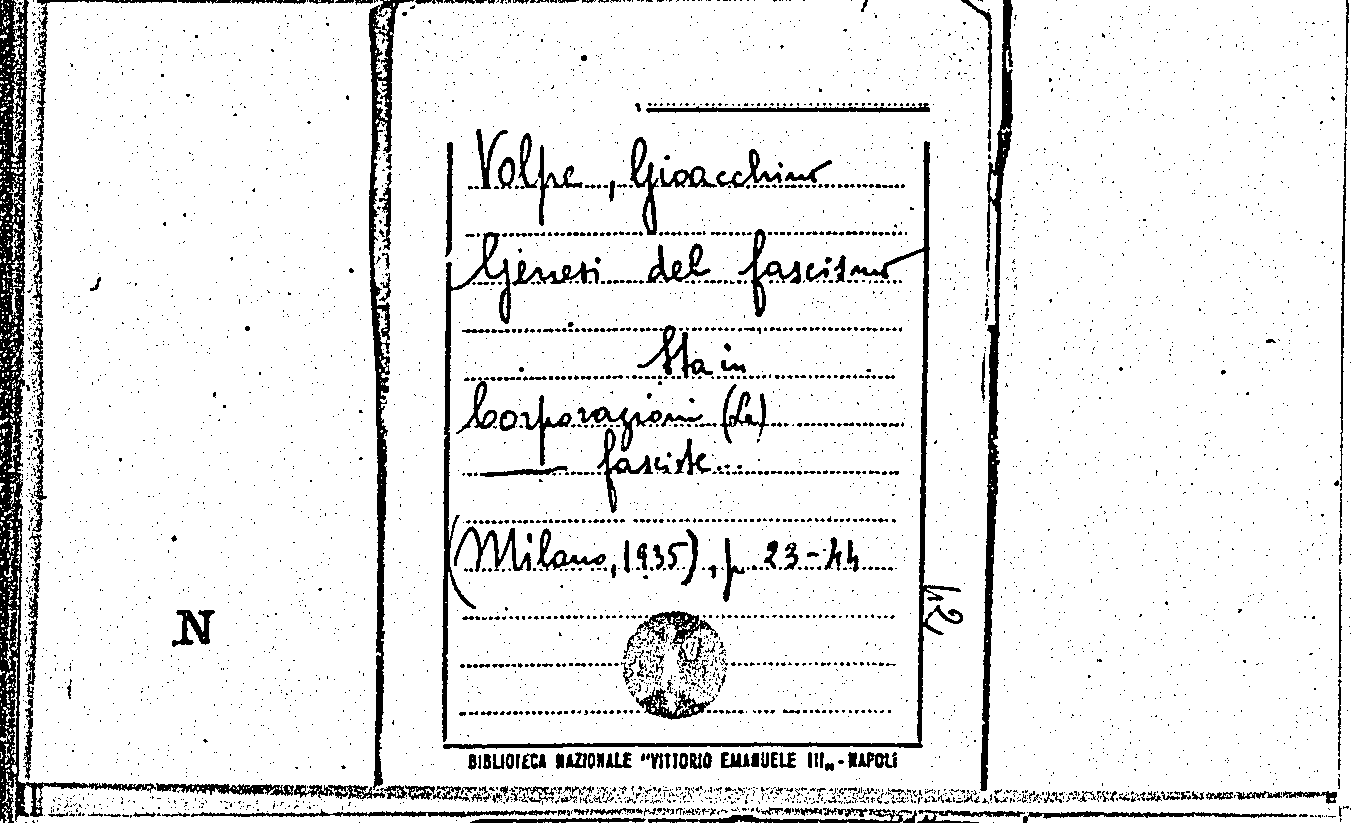 Volpe, Gioacchino
Genesi del fascismo
Sta in
Corporazioni (Le)
fasciste...
(Milano, 1935), p 23-44
N
BIBLIOTECA NAZIONALE "VITTORIO EMANUELE III„ - NAPOLI